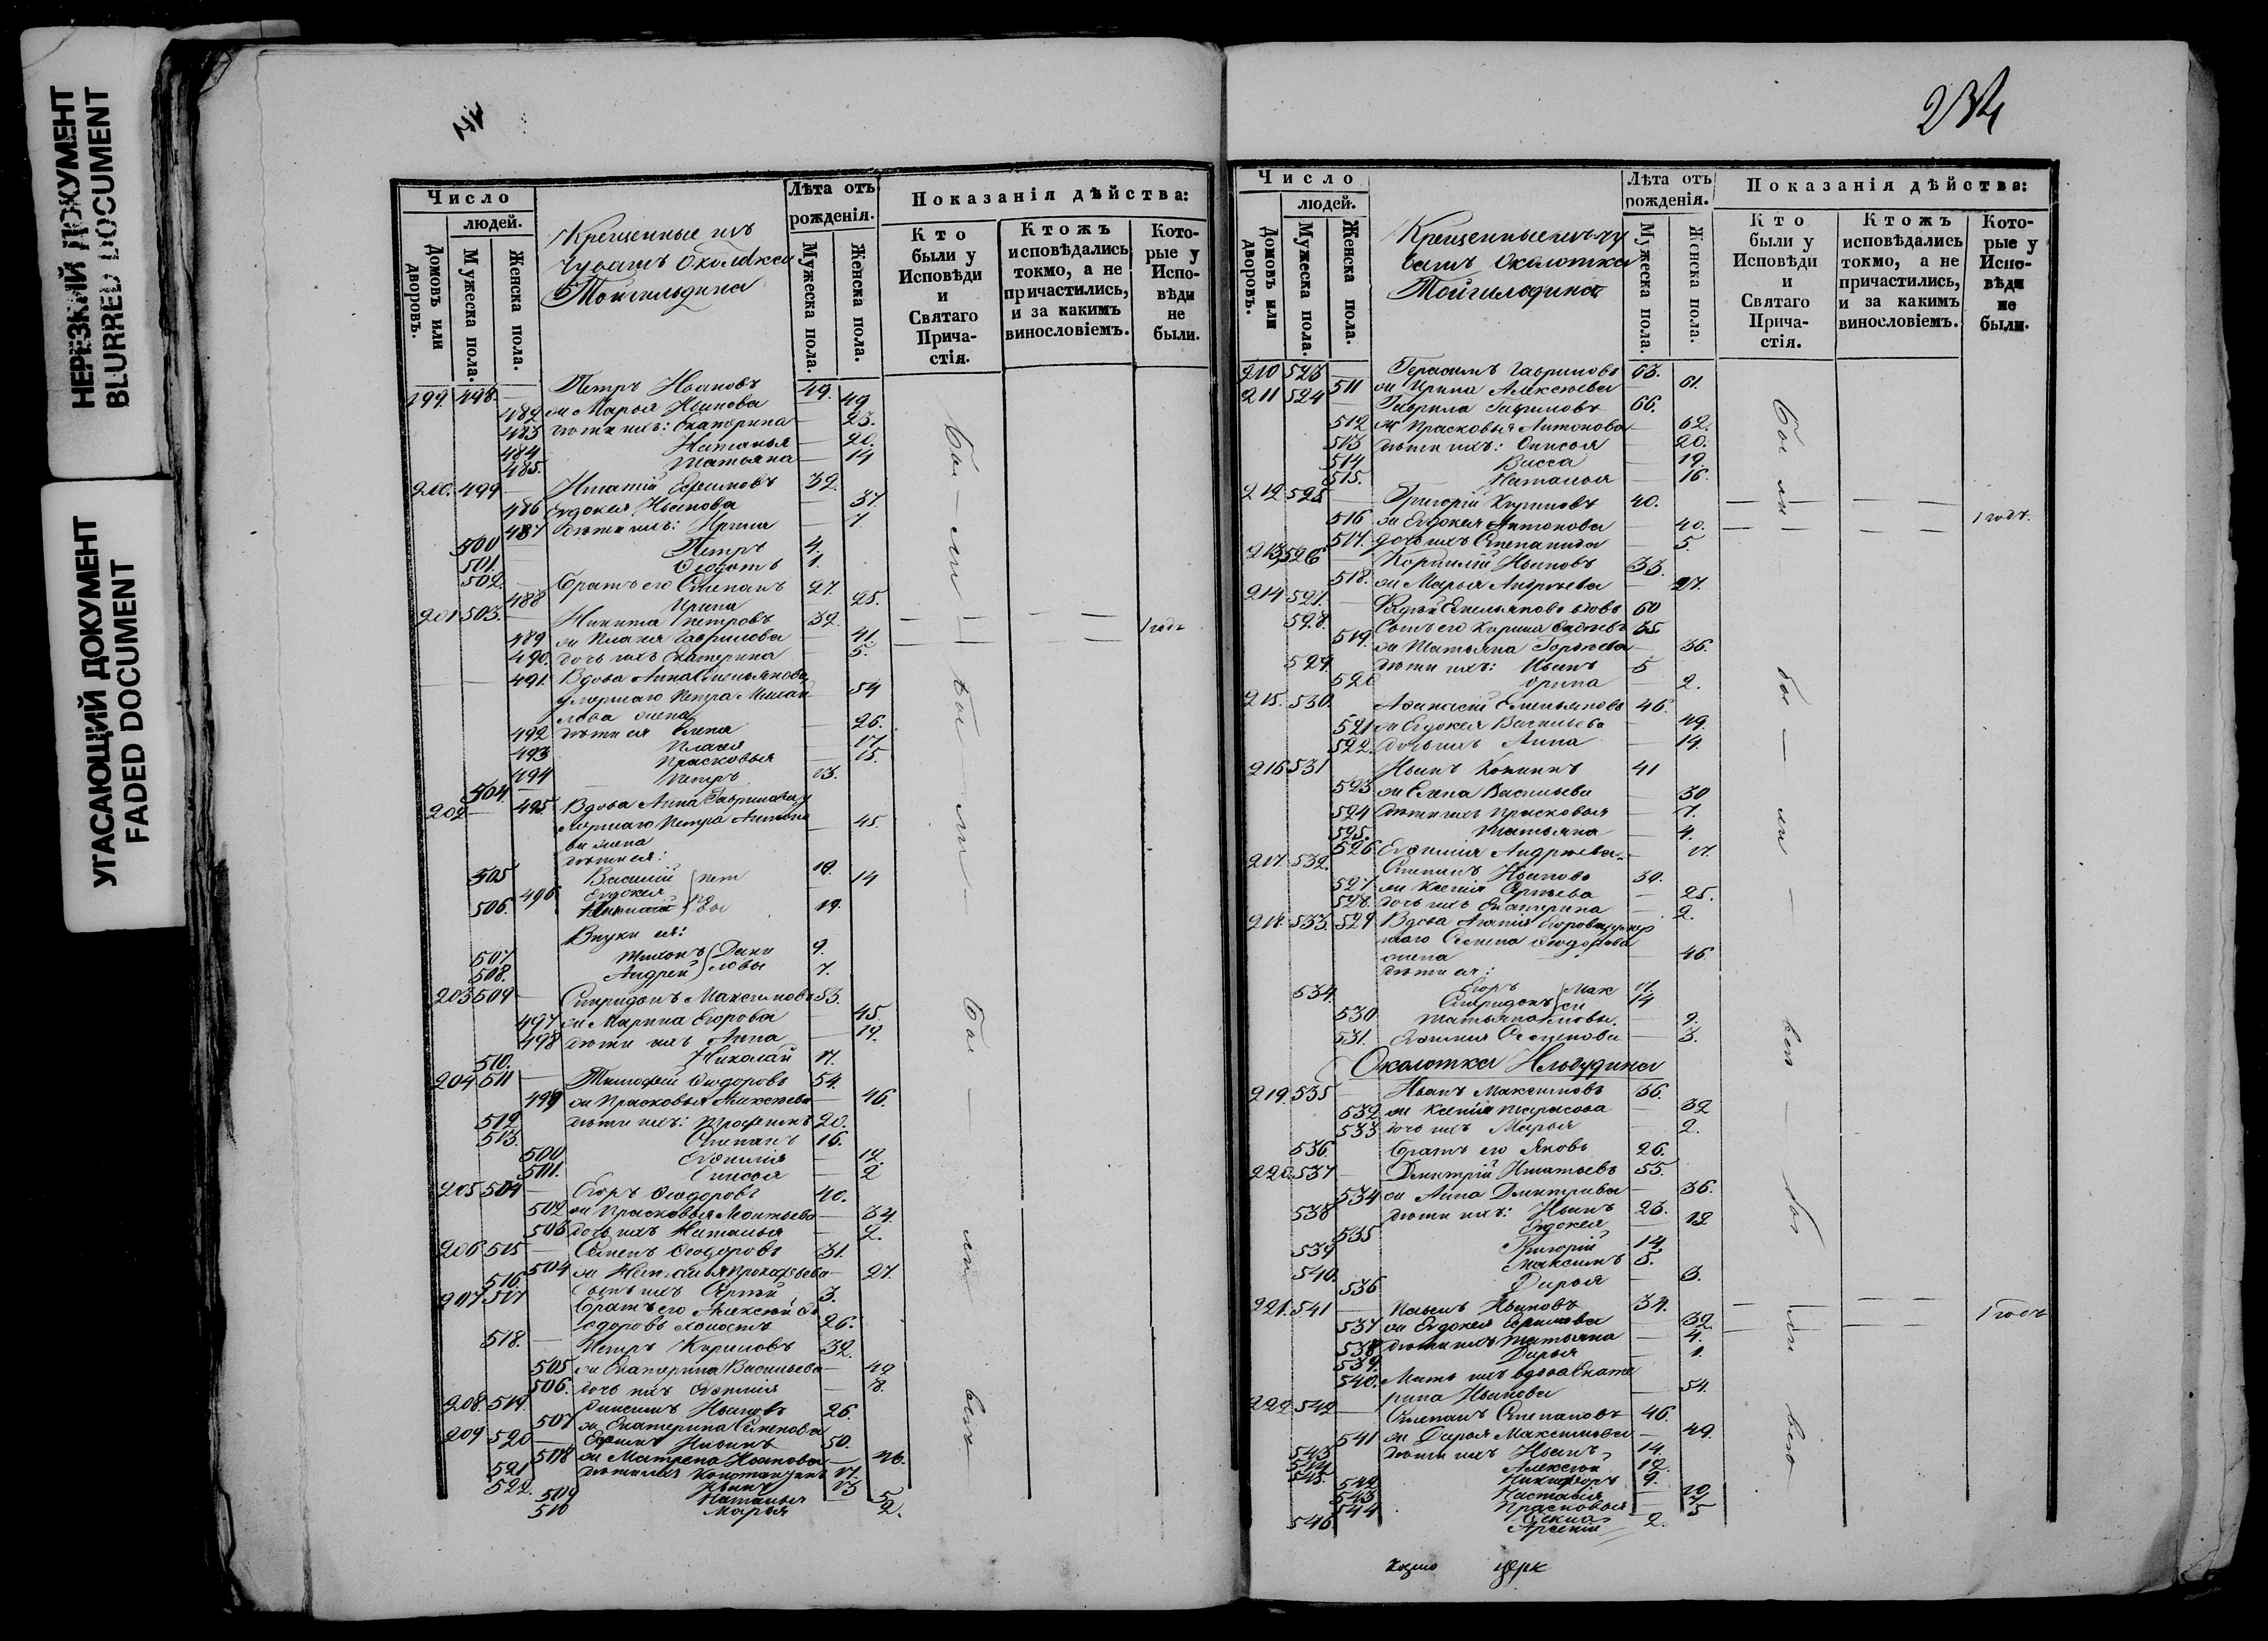 НЕРЕЗКИЙ ДОКУМЕНТ
BLURRED DOCUMENT
УГАСАЮЩИЙ ДОКУМЕНТ
FADED DOCUMENT
Число
людей.
Домовъ или дворовъ.
Мужеска пола.
Женска пола.
Крещенные изъ
Чувашъ Околотка
Тойгильдина
Лѣта отъ рожденія.
Мужеска пола.
Женска пола.
Показанія дѣйства:
Кто были у Исповѣди и Святаго Прича-стія.
Ктожъ исповѣдались токмо, а не причастились, и за какимъ винословіемъ.
Кото-рые у Испо-вѣди не были.
199. 498. — Петръ Ивановъ 49.
482 ж Марья Иванова — 49
483 дѣти ихъ: Екатерина — 23.
484 Наталья — 20.
485. Татьяна — 14
200. 499 — Игнатій Ефимовъ 32.
486 Евдокея Иванова 37.
487 дѣти ихъ: Ирина — 7
500 — Петръ 4.
501. — Ѳедотъ 1.
502. — братъ его Степанъ 27.
488 Ирина 25.
201 503. — Никита Петровъ 32. 1 годъ
489 ж Пелагея Гаврилова — 41.
490. дочь ихъ Екатерина — 5.
491. Вдова Анна Емельянова,
умершаго Петра Михай 54
лова жена
492 дѣти ея Елена 26.
493 Пелагея — 17
494 Прасковья — 15.
504. — Петръ 13.
202 — 495. Вдова Анна Гаврилова у
мершаго Петра Антоно — 45.
ва жена
дѣти ея:
505 Василій 19.
496 Евдокея — 14
506. 19.
Внуки ея:
507 Тихонъ Дани 9.
508. Андрей ловы 7.
203 509 — Спиридонъ Максимовъ 53.
497 ж Марина Егорова — 45.
498 дѣти ихъ Анна — 19.
510. Николай 17.
204 511 — Тимофей Ѳеодоровъ 54.
499 ж Прасковья Алексѣева — 46.
512 дѣти ихъ: Трофимъ 20.
513. Степанъ 16.
500 Евфимія — 12.
501. — 2
205 504 — Егоръ Ѳеодоровъ 40.
502 ж Прасковья — 34.
503 дочь ихъ Наталья — 2.
206 515 — Семенъ Ѳеодоровъ 31.
504 ж Наталья Прокофьева — 27.
516. Сынъ ихъ Сергѣй 3.
207 517 братъ его Алексѣй Ѳе
одоровъ холостъ 26.
518. — Петръ Кириловъ 32.
505 ж Екатерина Васильева — 42
506. дочь ихъ Евфимія — 8.
208. 519. Ивановъ 26.
507 ж Екатерина Семенова
209 520 — Ефимъ Ивановъ 50.
508 ж Матрена Иванова — 46.
521 дѣти ихъ Константинъ 17.
522. Иванъ 13
509 Наталья — 5
510 Марья 2.
бы — ли — бы — ли — бы — ли — вси
234
Число
людей.
Домовъ или дворовъ.
Мужеска пола.
Женска пола.
Крещенные изъ чу
вашъ околотка
Тойгильдина
Лѣта отъ рожденія.
Мужеска пола.
Женска пола.
Показанія дѣйства:
Кто были у Исповѣди и Святаго Прича-стія.
Ктожъ исповѣдались токмо, а не причастились, и за какимъ винословіемъ.
Кото-рые у Испо-вѣди не были.
210 523 — Герасимъ Гавриловъ 63.
511 ж Ирина Алексѣева 61.
211 524 — Гаврила Гавриловъ 66.
512 ж Прасковья Антонова — 62.
513 дѣти ихъ: Анисья — 20.
514 Васса — 19.
515. Наталья — 16.
212 525 — Григорій Кириловъ 40. 1 годъ.
516 ж Евдокея Антонова — 40.
517. дочь ихъ Степанида — 5.
213 526 — Корнилій Ивановъ 33.
518. ж Марья Андреева — 27.
214 527. — Фадѣй Емельяновъ вдовъ 60
528. Сынъ его Кирила Фадѣевъ 35.
519. ж Татьяна Гордѣева — 36.
529. дѣти ихъ: Иванъ 5
520 Орина 2.
215. 530. Афанасій Емельяновъ 46.
521 ж Евдокея Васильева — 49.
522. дочь ихъ Анна — 14.
216 531 Иванъ 41
523 ж Елена Васильева — 30
524 дѣти ихъ Прасковья — 7.
525. Татьяна — 4.
526 Евфимія Андреева — 17.
217. 532. Степанъ Ивановъ 30.
527 ж Ксенія Сергѣева — 25.
528. дочь ихъ Екатерина — 2.
218. 533. 529 Вдова Агафія Егорова, умер
шаго Семена Ѳеодорова
жена — 46.
дѣти ея:
534. Егоръ Мак 17.
Спиридонъ си 14
530 Татьяна мовы. — 9.
531. Евфимія Семенова — 3.
Околотка Ильбудина
219. 535 — Иванъ Максимовъ 36.
532 ж Ксенія Тарасова — 32
533 дочь ихъ Марья — 2.
536 братъ его Яковъ 26.
220 537 — Дмитрій Игнатьевъ 55.
534 ж Анна Дмитриева — 36.
538 дѣти ихъ: Иванъ 23.
535 Евдокея — 12
539 Григорій 14.
540. Максимъ 5.
536 Дарья — 3.
221. 541 — Павелъ Ивановъ 34. 1 годъ
537 ж Евдокея Ефимова — 32
538 дѣти ихъ Татьяна — 4.
539. Дарья — 1.
540. Мать ихъ вдова Екате
рина Иванова — 54.
222 542 — Степанъ Степановъ 46.
541 ж Дарья Максимова — 49.
543 дѣти ихъ Иванъ 14.
544 Алексѣй 12.
545. Никифоръ 9.
542 Настасія — 10.
543 Прасковья — 7
544 5
546 Арсеній 2.
бы ли бы — ли — вси — бы ли вси
Козмо